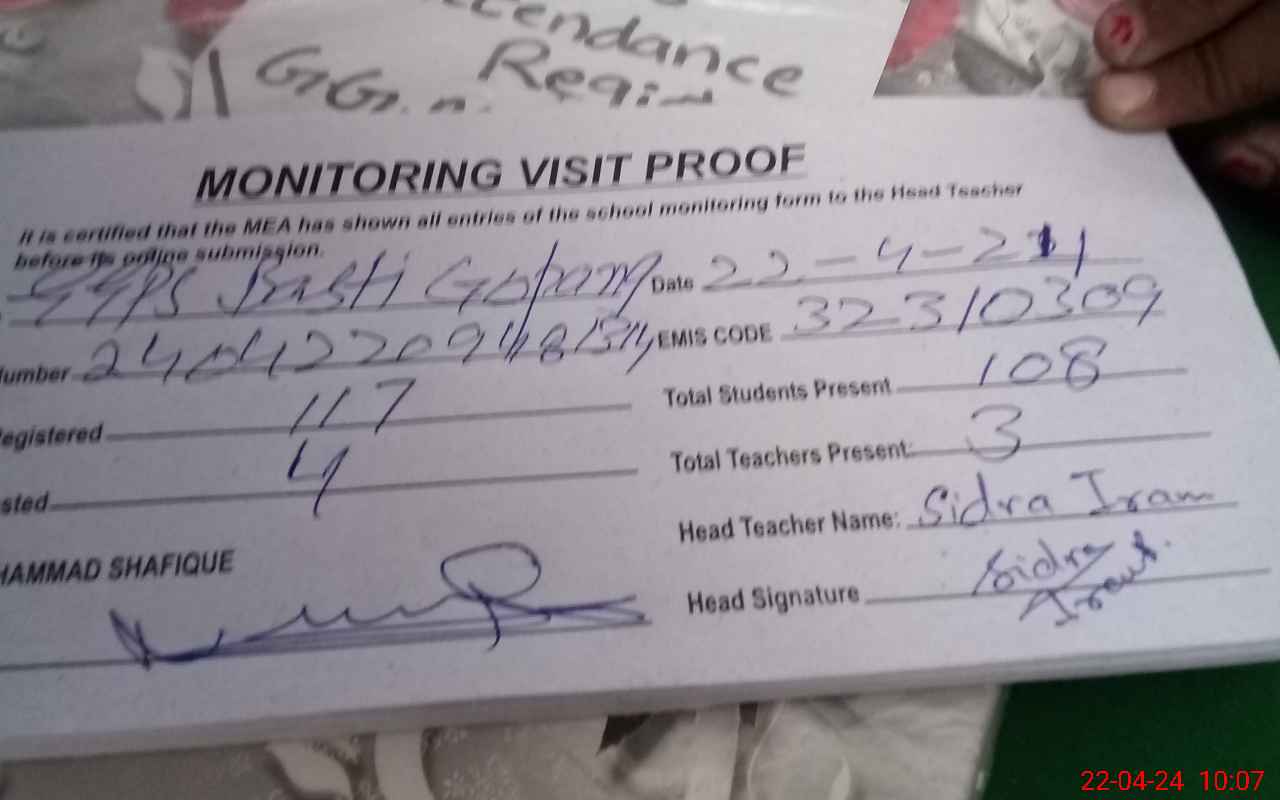 endance
GG. n. Regi
MONITORING VISIT PROOF
It is certified that the MEA has shown all entries of the school monitoring form to the Head Teacher
before its online submission.
GGPS Basti Date 22-4-24
Number EMIS CODE 32310309
Registered 117 Total Students Present 108
sted 4 Total Teachers Present: 3
Head Teacher Name: Sidra Iram
HAMMAD SHAFIQUE
Head Signature Sidra
Iram
22-04-24 10:07